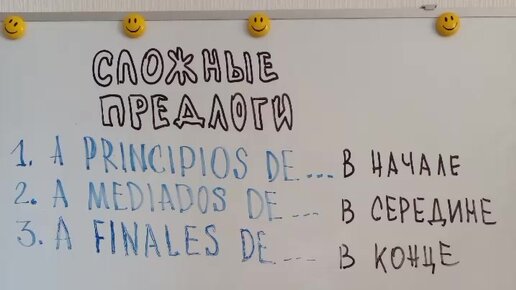 СЛОЖНЫЕ
ПРЕДЛОГИ
1. A PRINCIPIOS DE... В НАЧАЛЕ
2. A MEDIADOS DE... В СЕРЕДИНЕ
3. A FINALES DE... В КОНЦЕ